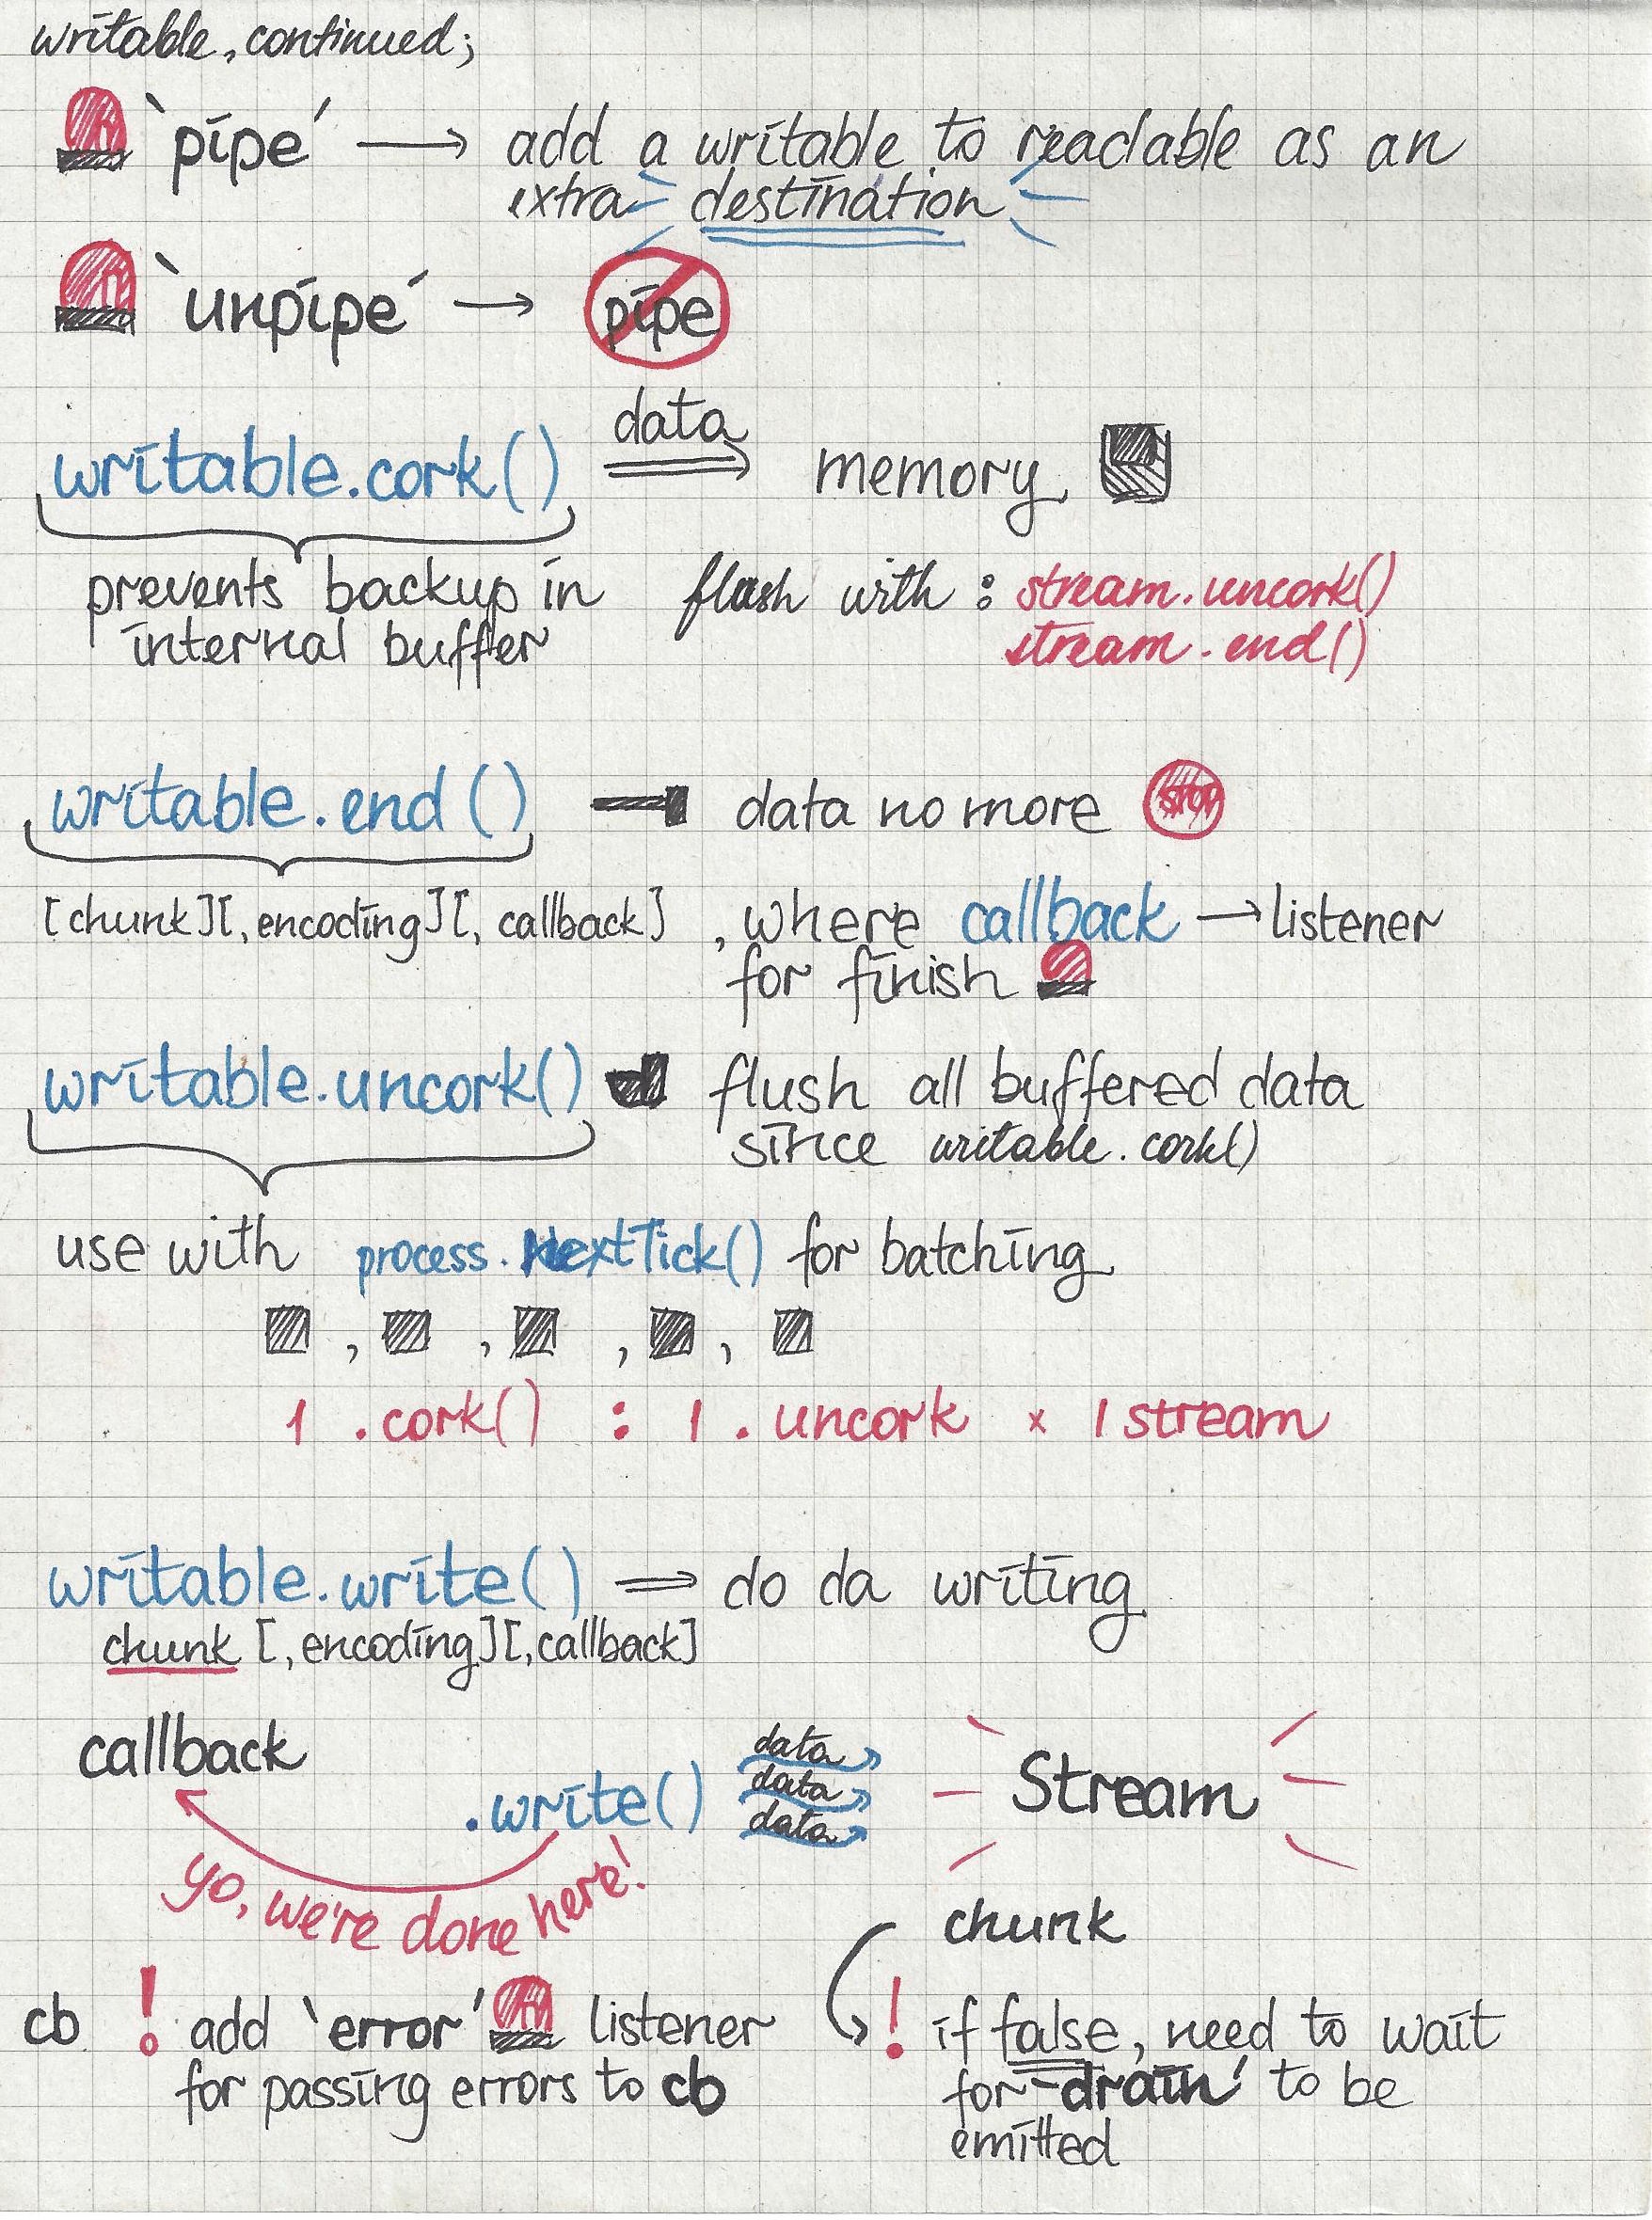 writable, continued;
`pipe´ → add a writable to readable as an
extra destination
`unpipe´ → pipe
data
writable.cork() ⇒ memory
prevents backup in
internal buffer
flush with : stream.uncork()
stream.end()
writable.end() data no more stop
[chunk][, encoding][, callback] , where callback → listener
for finish
writable.uncork() flush all buffered data
since writable.cork()
use with process.nextTick() for batching
, , , ,
1 .cork() : 1 .uncork × 1 stream
writable.write() ⇒ do da writing
chunk [, encoding][, callback]
callback
.write()
data
data
data
Stream
yo, we're done here!
chunk
cb ! add `error´ listener
for passing errors to cb
! if false, need to wait
for `drain´ to be
emitted